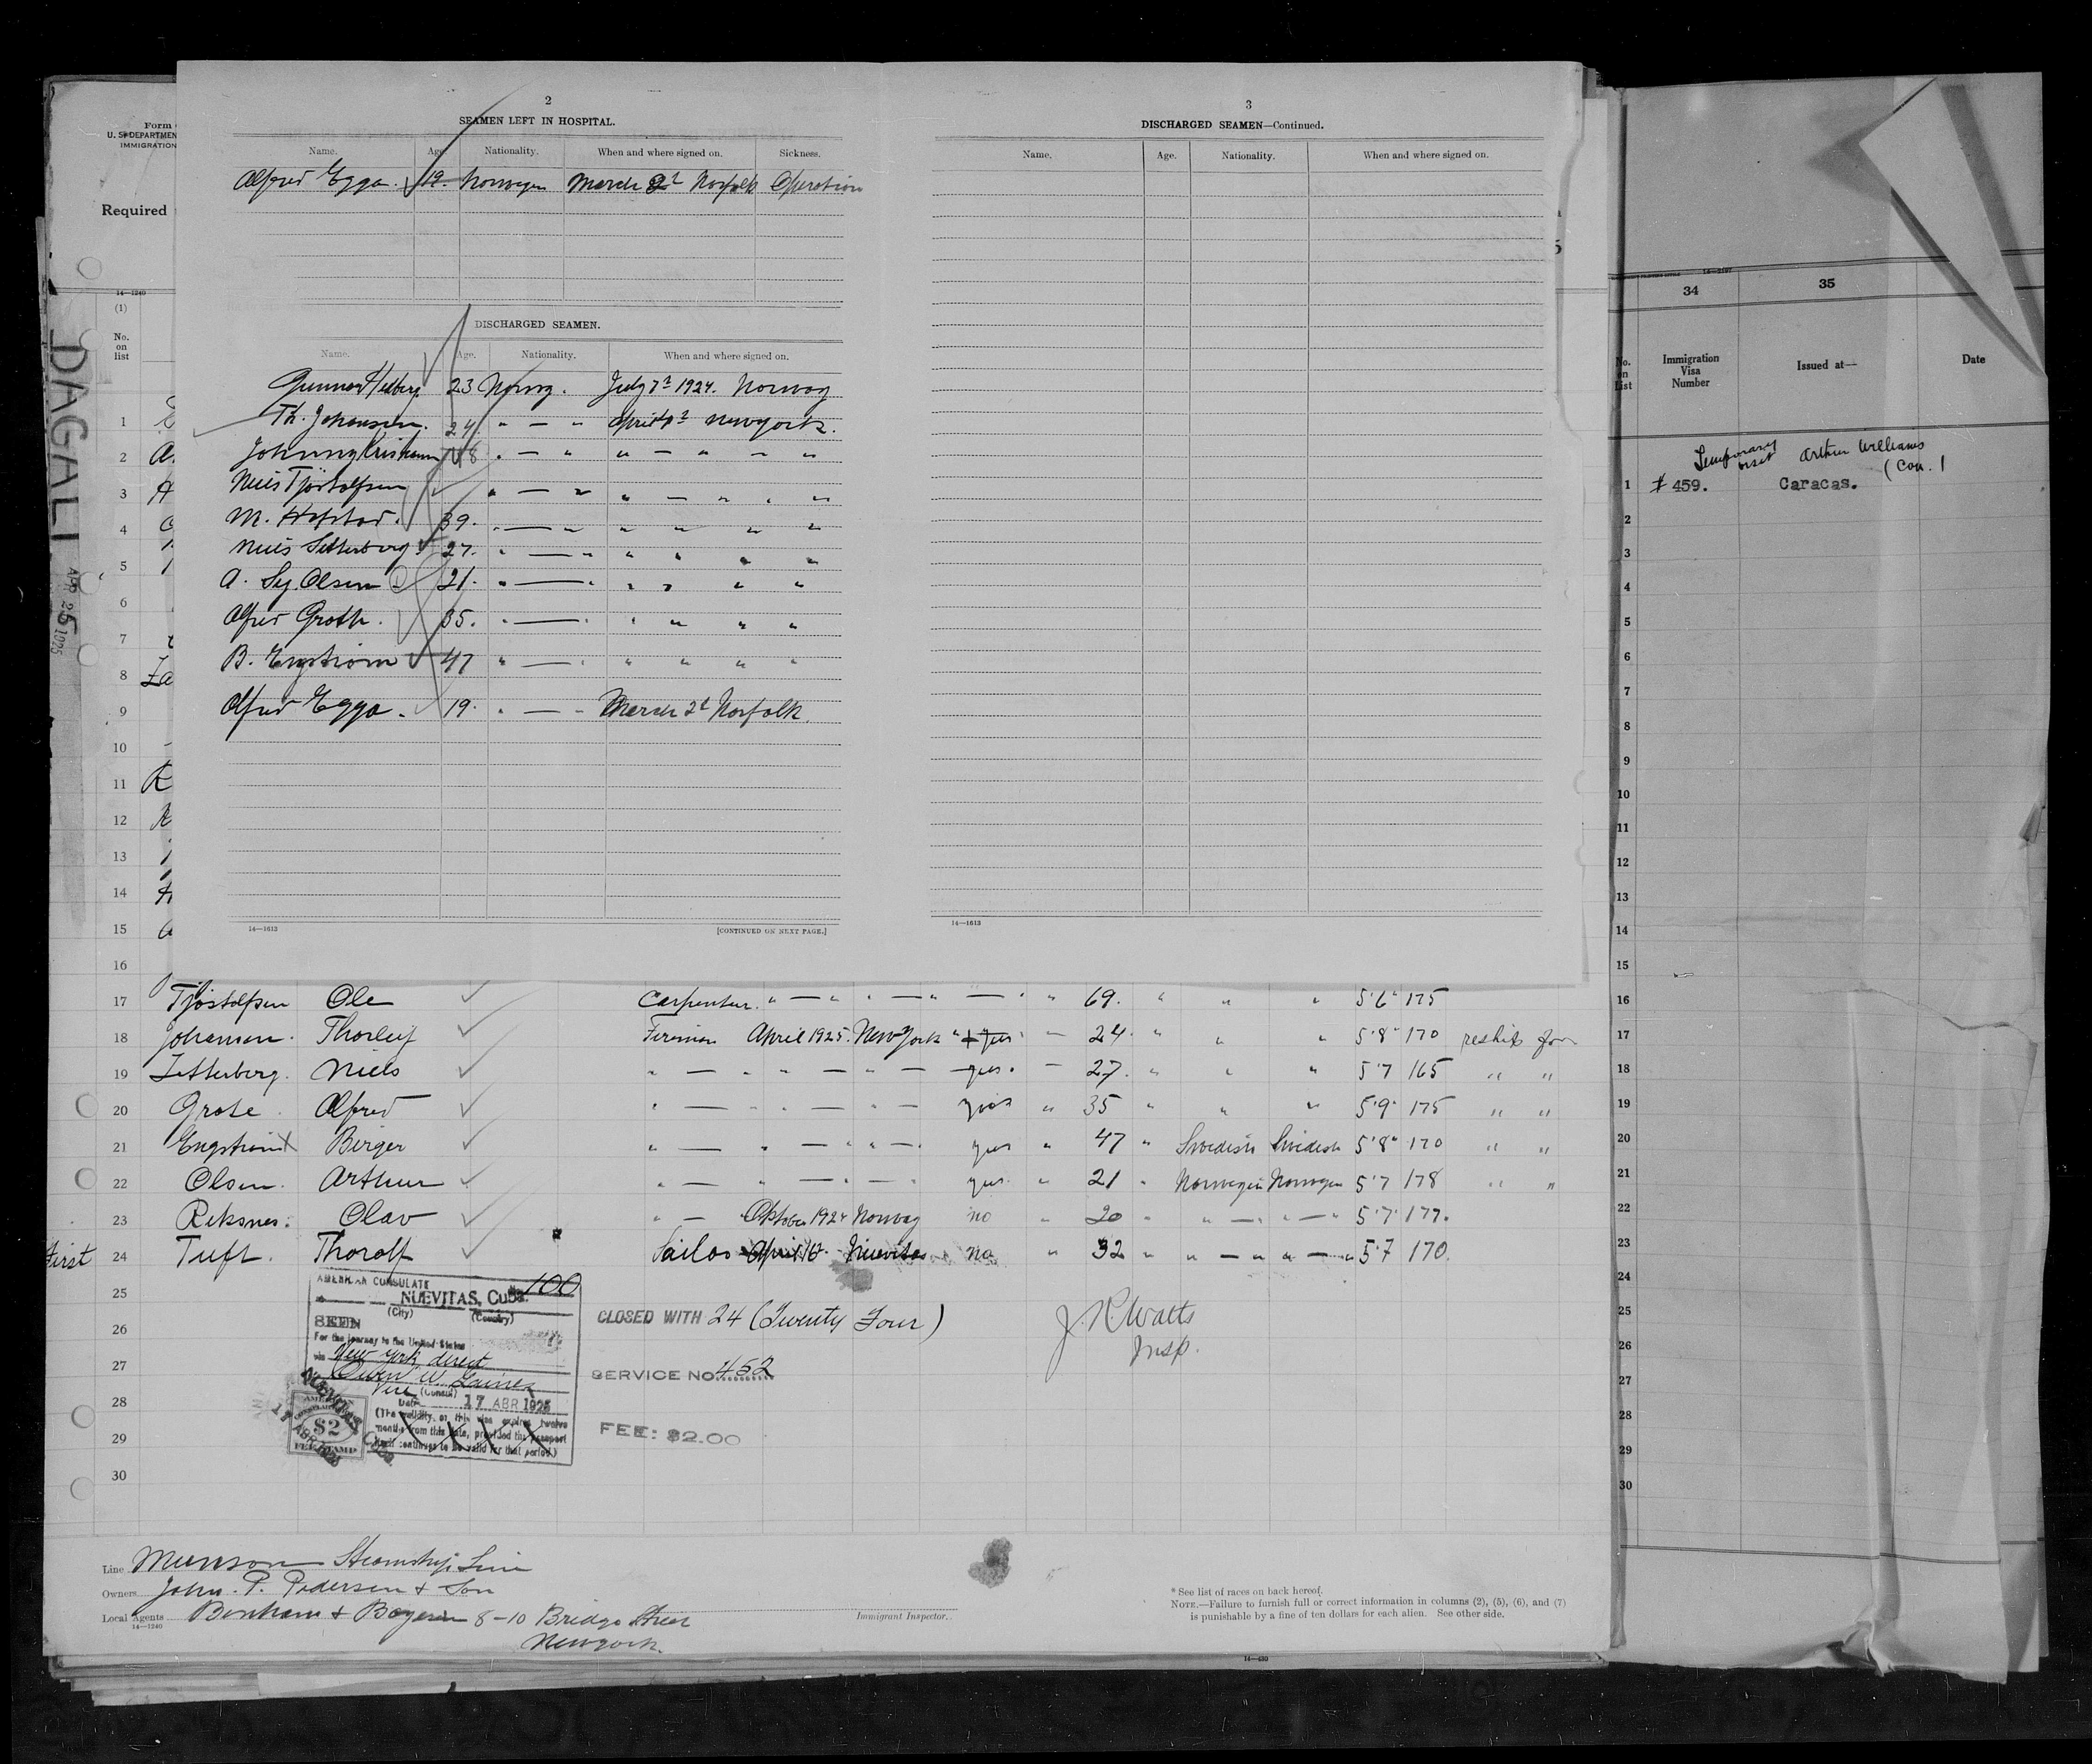 2
SEAMEN LEFT IN HOSPITAL.
Name. Age. Nationality. When and where signed on. Sickness.
Alfred Egga. 19. Norwegen March 2d Norfolk Operation
DISCHARGED SEAMEN.
Name. Age. Nationality. When and where signed on.
Gunnar 23 Norwg. July 7d 1924. Norway
Th. Johansen. 24. " — " April Newyork.
Johnny 48 " — " " — " — "
Niels Tjöstolfsen " — " " — " " "
M. Hofstad. 39. " — " " " " "
Niels Setterberg 27. " — " " " " "
A. Sg. Olsen 21. " — " " " " "
Alfred Groth. 35. " — " " " " "
B. Engström 47 " — " " " " "
Alfred Egga. 19. " — " March 2d Norfolk.
14—1613 [CONTINUED ON NEXT PAGE.]
3
DISCHARGED SEAMEN—Continued.
Name. Age. Nationality. When and where signed on.
14—1613
Form
U. S. DEPARTMEN
IMMIGRATION
Required
14—1240
(1)
No.
on
list
DAGALI
APR 25 1925
1
2
3
4
5
6
7
8
9
10
11
12
13
14
15
16
17 Tjöstolfsen Ole Carpenter. " — " " — " — " " 69. " " " 5'6" 175
18 Johansen. Thorleif Fireman April 1925. New York " yes " — 24. " " " 5'8" 170 reship for
19 Zetterberg. Niels " — " " — " — yes. — 27. " " " 5'7 165 " "
20 Grote. Alfred " — " " — " — yes " 35 " " " 5'9" 175 " "
21 Engström Birger " — " — " " — yes " 47 " Swedish Swedish 5'8" 170 " "
22 Olsen. Arthur " — " — " — yes. " 21 " Norwegin Norwegen 5'7 178 " "
23 Reksnes. Olav " — Oktober 1924 Norway no " 20 " " — " " — " 5'7" 177.
First 24 Tuft. Thoralf Sailor April 16 Nuevitas no " 32 " " — " " — " 5'7 170.
25
26
27
28
29
30
AMERICAN CONSULATE No. 100
NUEVITAS, Cuba.
(City) (Country)
SEEN
For the journey to the United States
via New York direct
Owen W. Gaines
Vice (Consul)
Date 17 ABR 1925
(The validity of this visa expires twelve
months from this date, provided the passport
continues to be valid for that period.)
XXXX
NUEVITAS, Cuba.
17 ABR 1925
$2
FEE STAMP
CLOSED WITH 24 (Twenty Four)
SERVICE No. 452
FEE: $2.00
J. R. Watts
Insp.
Line Munson Steamship Line
Owners John. P. Pedersen + Son
Local Agents Benham + Boyesen 8-10 Bridge Street
Newyork.
14—1240
Immigrant Inspector.
* See list of races on back hereof.
NOTE.—Failure to furnish full or correct information in columns (2), (5), (6), and (7)
is punishable by a fine of ten dollars for each alien. See other side.
14—430
34 35
No.
on
List
Immigration
Visa
Number
Issued at—
Date
Temporary
visit Arthur Williams
(Con.)
1 # 459. Caracas.
2
3
4
5
6
7
8
9
10
11
12
13
14
15
16
17
18
19
20
21
22
23
24
25
26
27
28
29
30